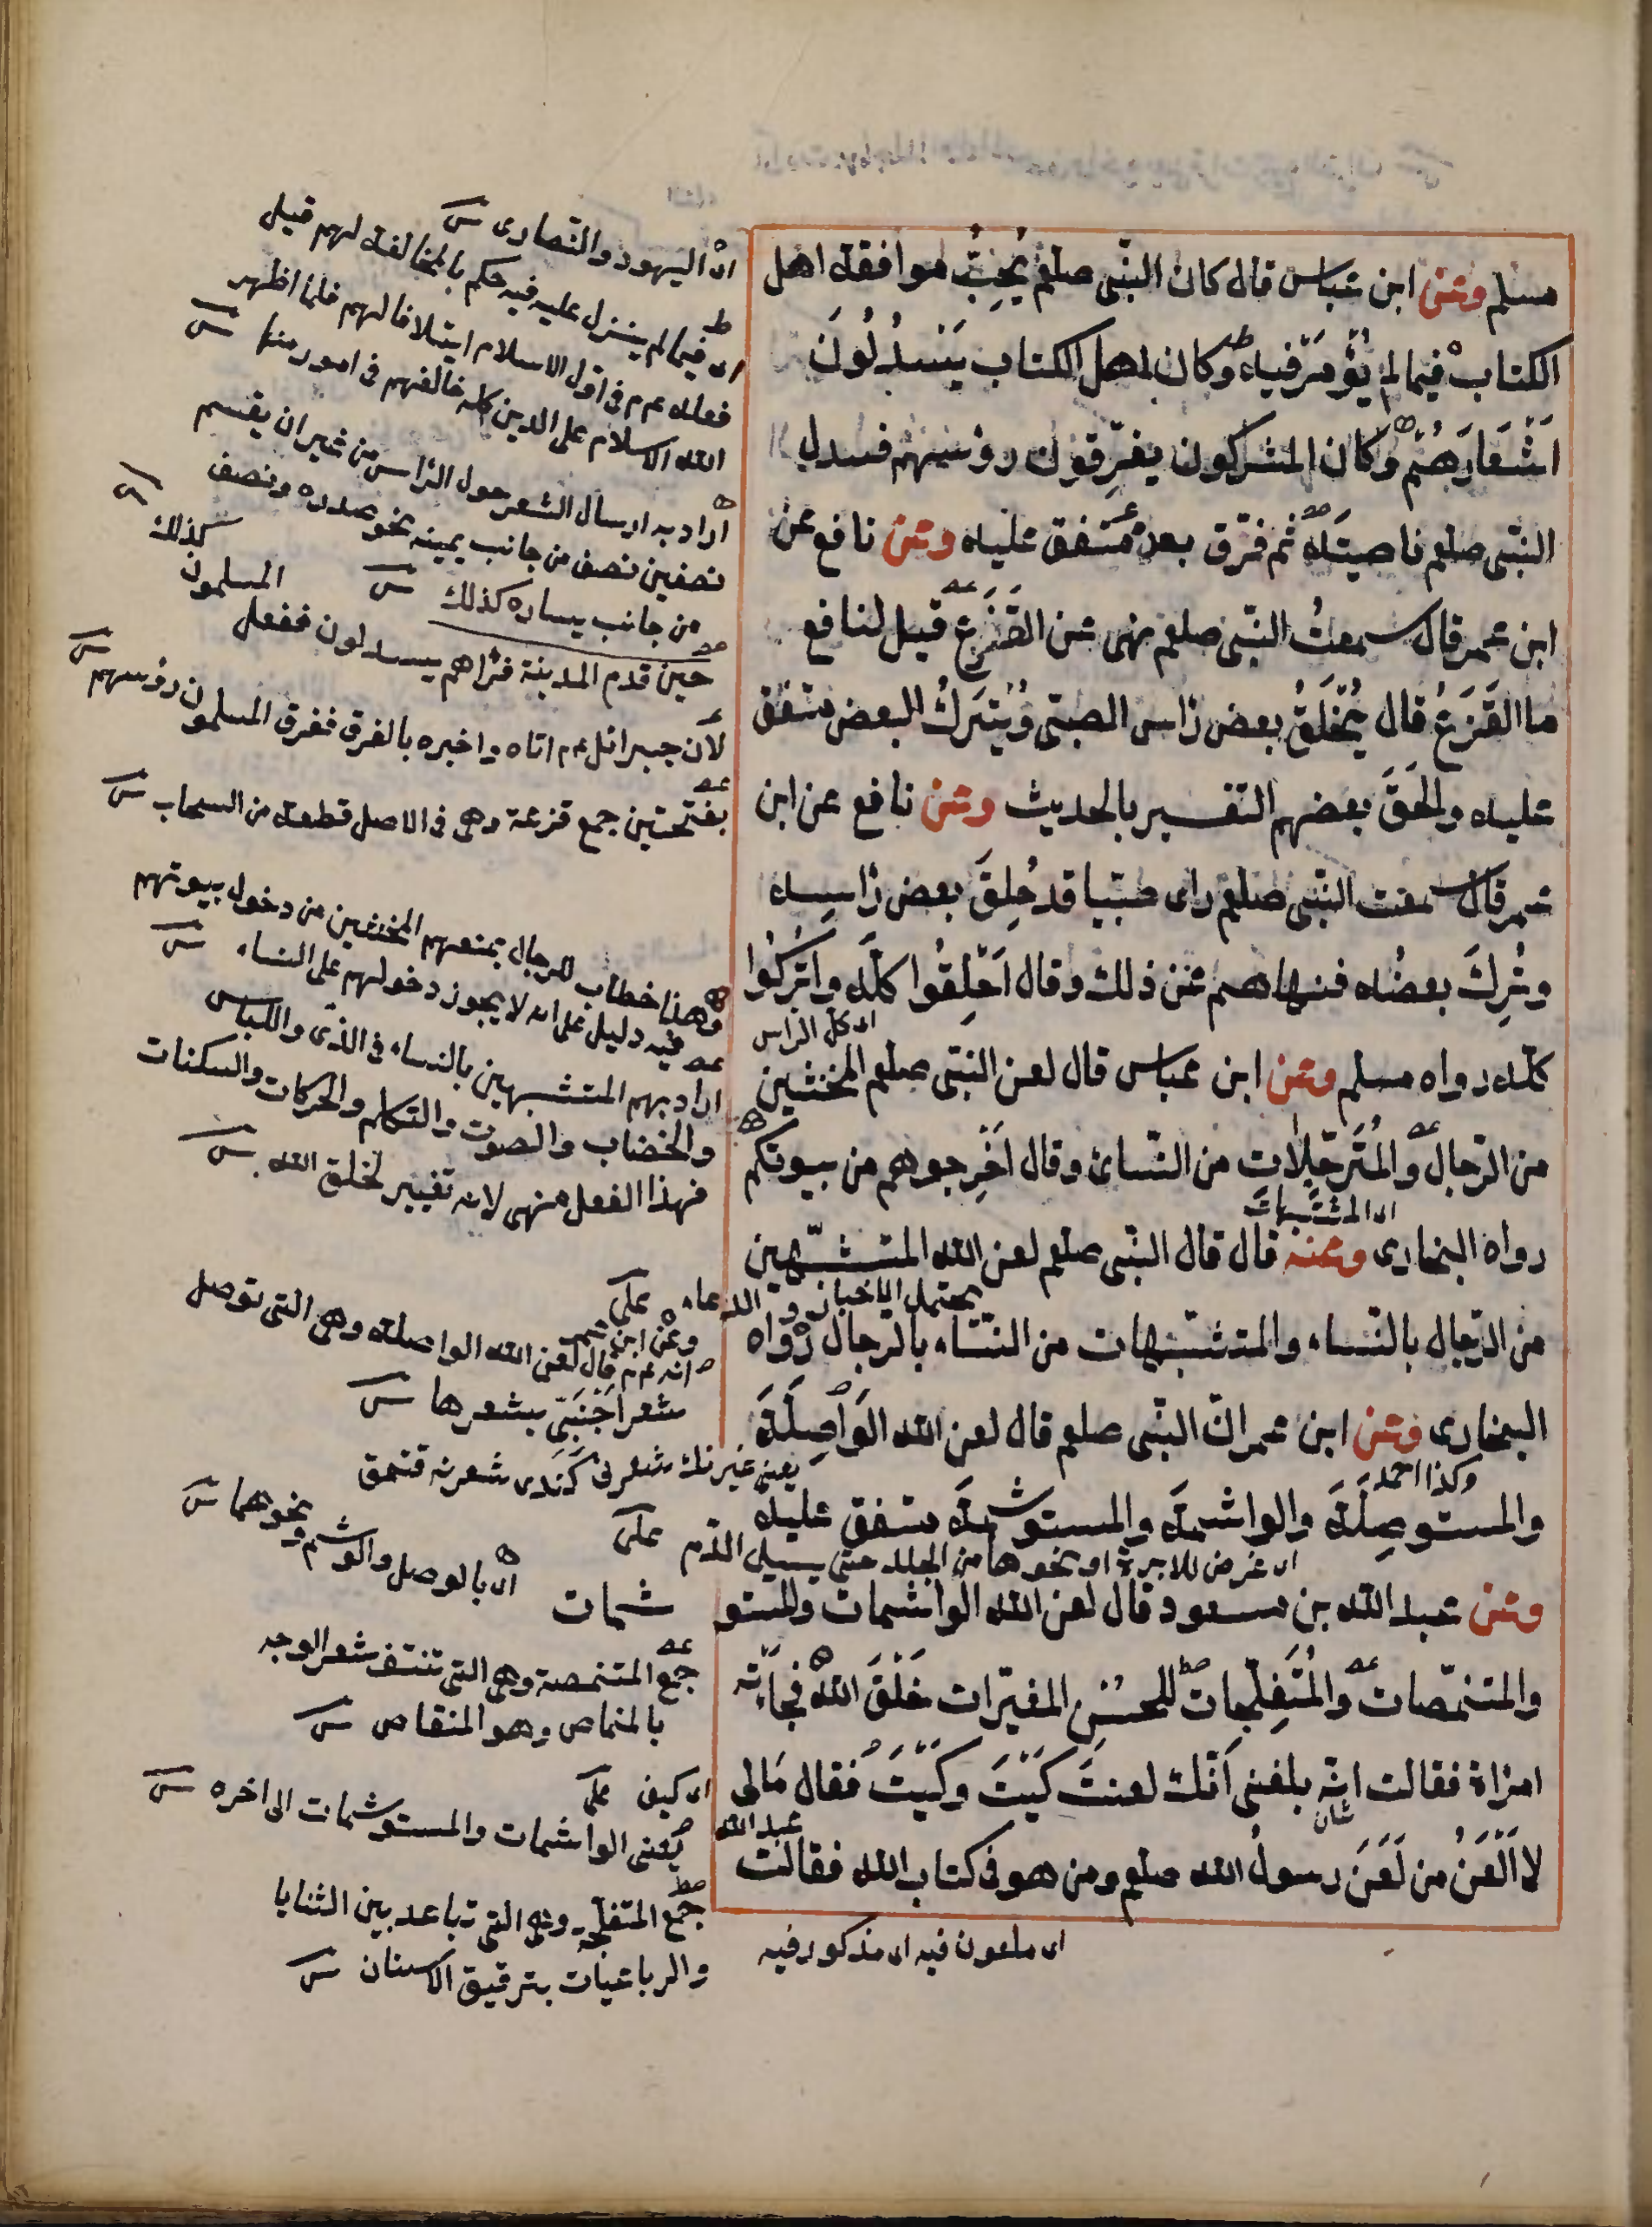 مسلم وعن ابن عباس قال كان النبى صلعم يُحِبُّ موافقة اهل
الكتاب فيما لم يُؤمَر فيه وكان اهل الكتاب يَسْدِلُونَ
اَشْعَارَهُمْ وَكان المشركون يفرِقون رؤسهم فسدل
النبى صلعم ناصيتَهُ ثم فرّق بعد متفق عليه وعن نافع عن
ابن عمر قال سمعتُ النبى صلعم ينهى عن القَزَعِ قيل لنافع
ما القَزَعُ قال يُحْلَقُ بعض رأس الصبى وَيُتْرَكُ البعض متفق
عليه والحَقَ بعضهم التفسير بالحديث وعن نافع عن ابن
عمر قال سمعت النبى صلعم راى صبيا قد حُلِقَ بعض رأسه
وتُرِكَ بعضُه فنهاهم عن ذلك وقال اَحْلِقُوا كلَّه واتركُوا
اى كل الراس
كلّه رواه مسلم وعن ابن عباس قال لعن النبى صلعم المخنثين
من الرّجال والمُتَرَجِّلات من النّسائ وقال اَخْرِجوهم من بيوتكم
اى المتشبّهات
رواه البخارى وعنه قال قال النبى صلعم لعن الله المتشبّهين
يحتمل الاخبار والدعاء على
من الرّجال بالنّساء والمتشبّهات من النّسَاء بالرجال رواه
البخارى وعن ابن عمر انّ النبى صلعم قال لعن الله الوَاصِلَةَ
وكذا احمد
والمستوصِلَةَ والواشمة والمستوشمة متفق عليه
اى غرض الابرة او نحوها من الجلد حتى يسيل الدّم على
وعن عبد الله بن مسعود قال لعن الله الواشمات والمستو شمات
والمتنمّصات والمُتَفلّجات للحسْنِ المغيّرات خَلْقَ الله فجاَتْه
امرأة فقالت انه بلغنى اَنّك لعنتَ كَيْتَ وكَيْتَ فقال مَالى
شان
عبد الله
لا اَلْعَنُ من لَعَنَ رسولُ الله صلعم ومن هو فى كتاب الله فقالت
اى ملعون فيه اى مذكور فيه
اى اليهود والنصارى
اى فيما لم ينزل عليه فيه حكم بالمخالفة لهم قيل
فعله عم م فى اوّل الاسلام ايتلافا لهم فلما اظهر
الله الاسلام على الدين كله خالفهم فى امور منها
اراد به ارسال الشعر حول الرّاس من غير ان يقسم
نصفين نصف من جانب يمينه نحو صدره ونصف
من جانب يساره كذلك
كذلك
المسلمون
حين قدم المدينة فرآهم يسدلون ففعل
لان جبرائل عم م اتاه واخبره بالفرق ففرق المسلمون رؤسهم
بفتحتين جمع قزعة وهى فى الاصل قطعة من السحاب
وهذا خطاب للرجال بمنعهم المخنثين من دخول بيوتهم
وفيه دليل على انه لا يجوز دخولهم على النساء
اراد بهم المتشبهين بالنساء فى الزى واللباس
والخضاب والصوت والتكلم والحركات والسكنات
فهذا الفعل منهى لانه تغيير لخلق الله
وعن ابن عمر
انه عم م قال لعن الله الواصلة وهى التى توصل
شعرا اَجْنَبِىّ بشعرها
يعنى غيرنك شعرنى كندى شعرنه قتمق
اى بالوصل والوشم ونحوهما
جمع المتنمصة وهى التى تنتف شعر الوجه
بالمنماص وهو المنقاص
اى كيف على
يعنى الواشمات والمستوشمات الى اخره
جمع المتفلجة وهى التى تباعد بين الثنايا
والرباعيات بترقيق الاسنان